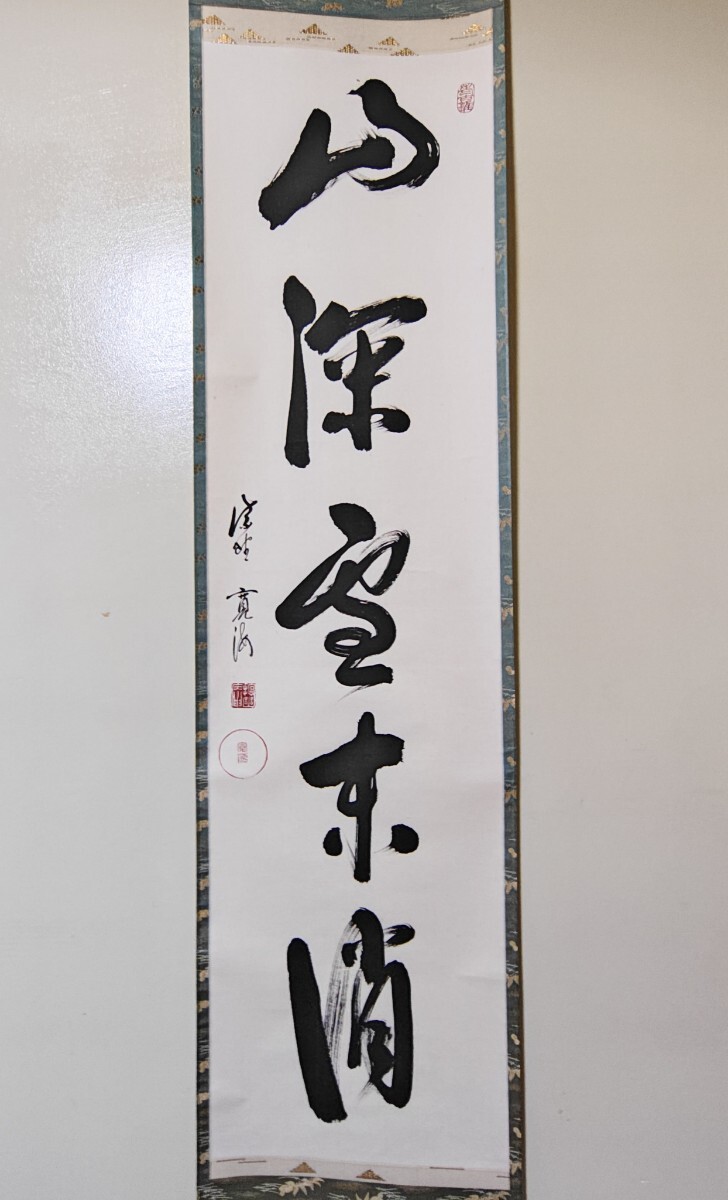 山深雪未消
寛海